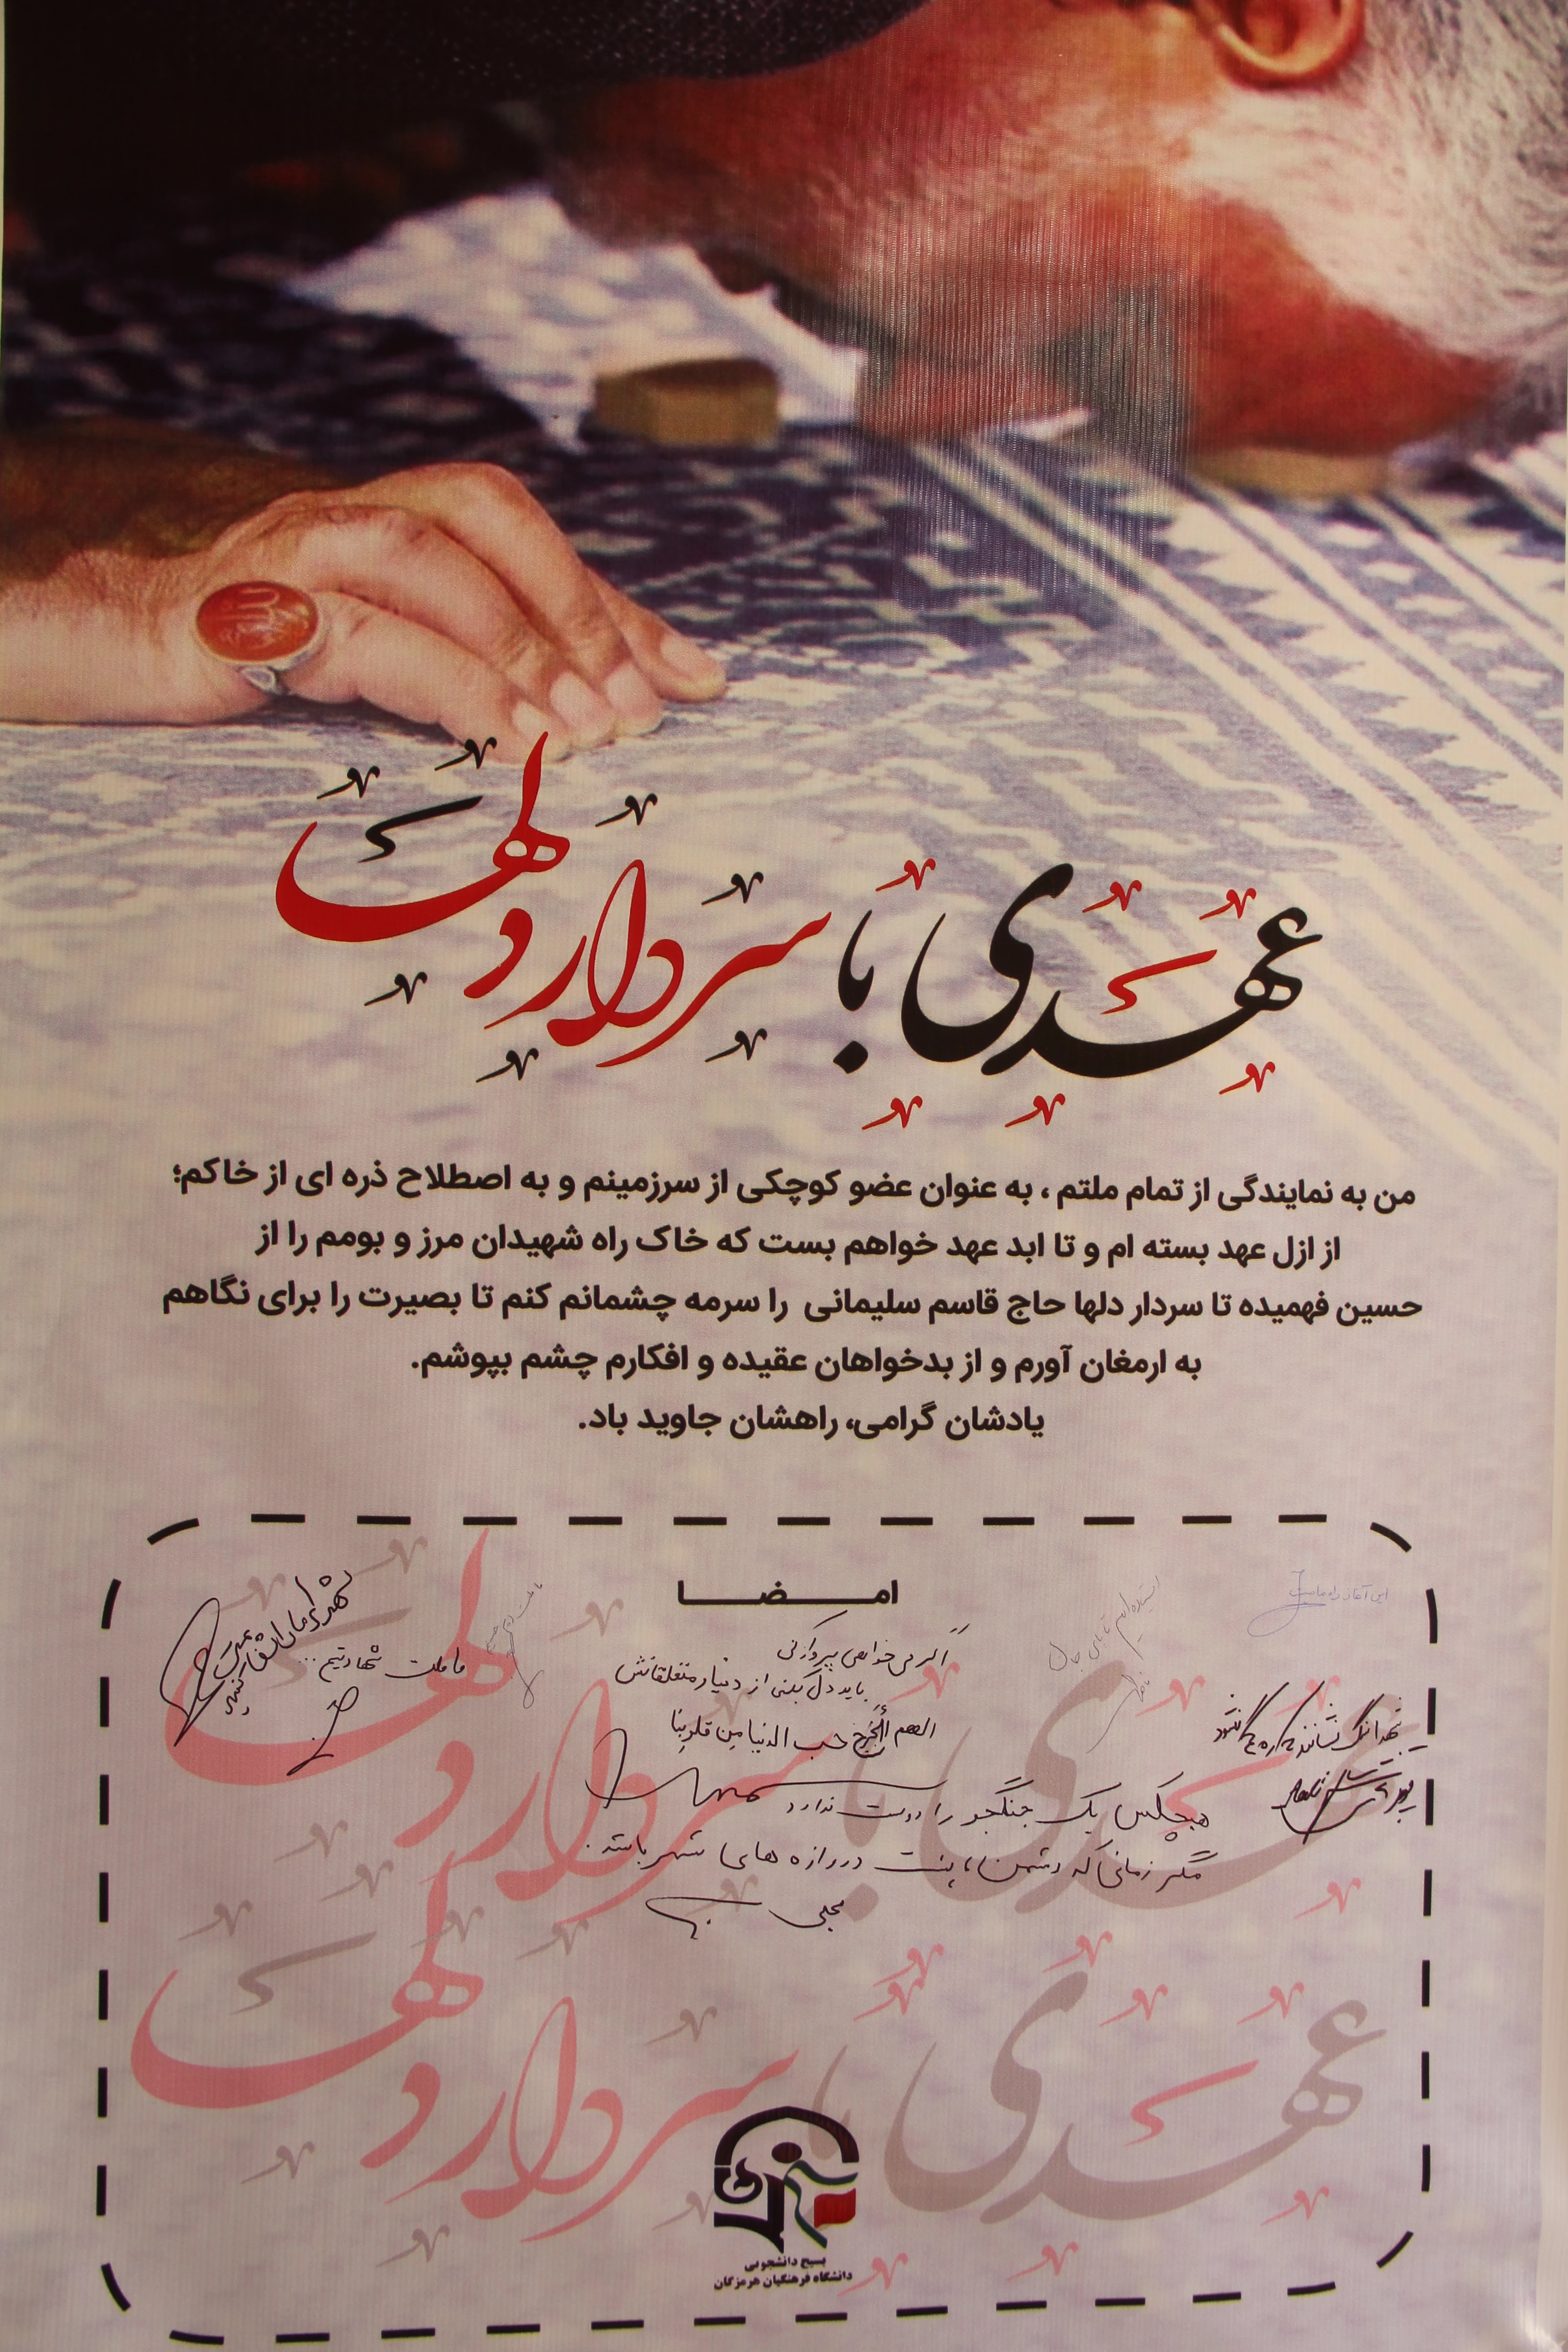 عهدی با سردار دلها
من به نمایندگی از تمام ملتم ، به عنوان عضو کوچکی از سرزمینم و به اصطلاح ذره ای از خاکم؛
از ازل عهد بسته ام و تا ابد عهد خواهم بست که خاک راه شهیدان مرز و بومم را از
حسین فهمیده تا سردار دلها حاج قاسم سلیمانی را سرمه چشمانم کنم تا بصیرت را برای نگاهم
به ارمغان آورم و از بدخواهان عقیده و افکارم چشم بپوشم.
یادشان گرامی، راهشان جاوید باد.
امضا
این آغاز راه ماست
ما ملت شهادتیم ...
اگر می خواهی پرواز کنی
باید دل بکنی از دنیا و متعلقاتش
اللهم أخرج حب الدنیا من قلوبنا
هیچکس یک جنگجو را دوست ندارد
مگر زمانی که دشمن، پشت دروازه های شهر باشد.
عهدی با سردار دلها
عهدی با سردار دلها
بسیج دانشجویی
دانشگاه فرهنگیان هرمزگان